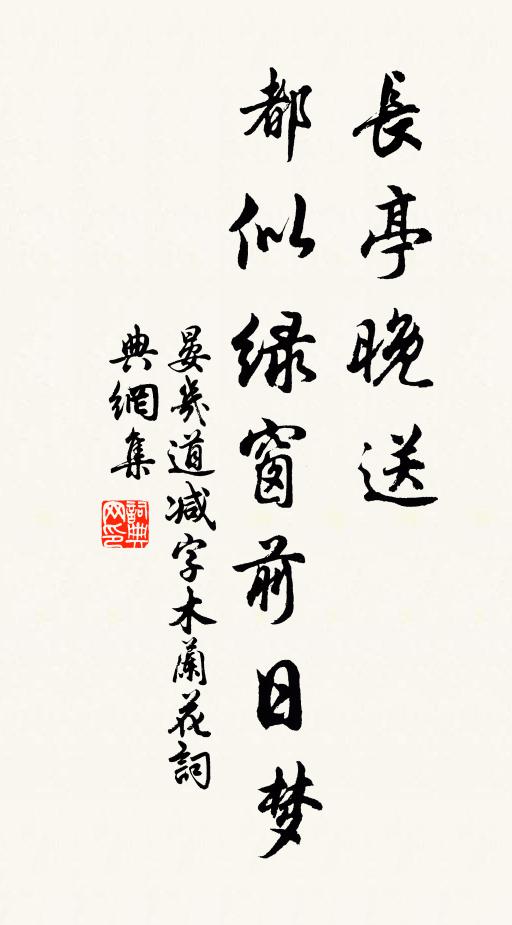 長亭晚送
都似绿窗前日梦
晏幾道减字木蘭花詞
典網集
詞典网印